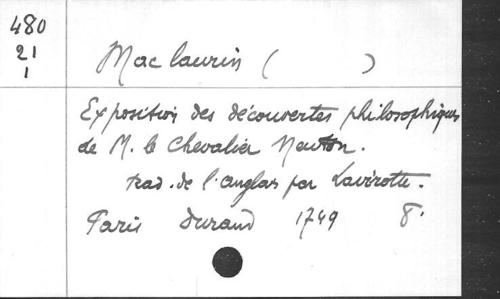 480
21
1
Maclaurin ( )
Exposition des découvertes philosophiques
de M. le Chevalier Newton.
trad. de l'anglas par Lavirotte.
Paris Durand 1749 8°.